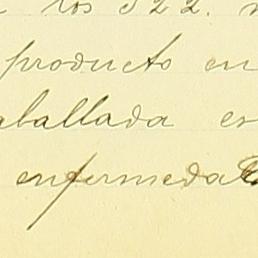 los 322.
producto en
aballada es
enfermedad